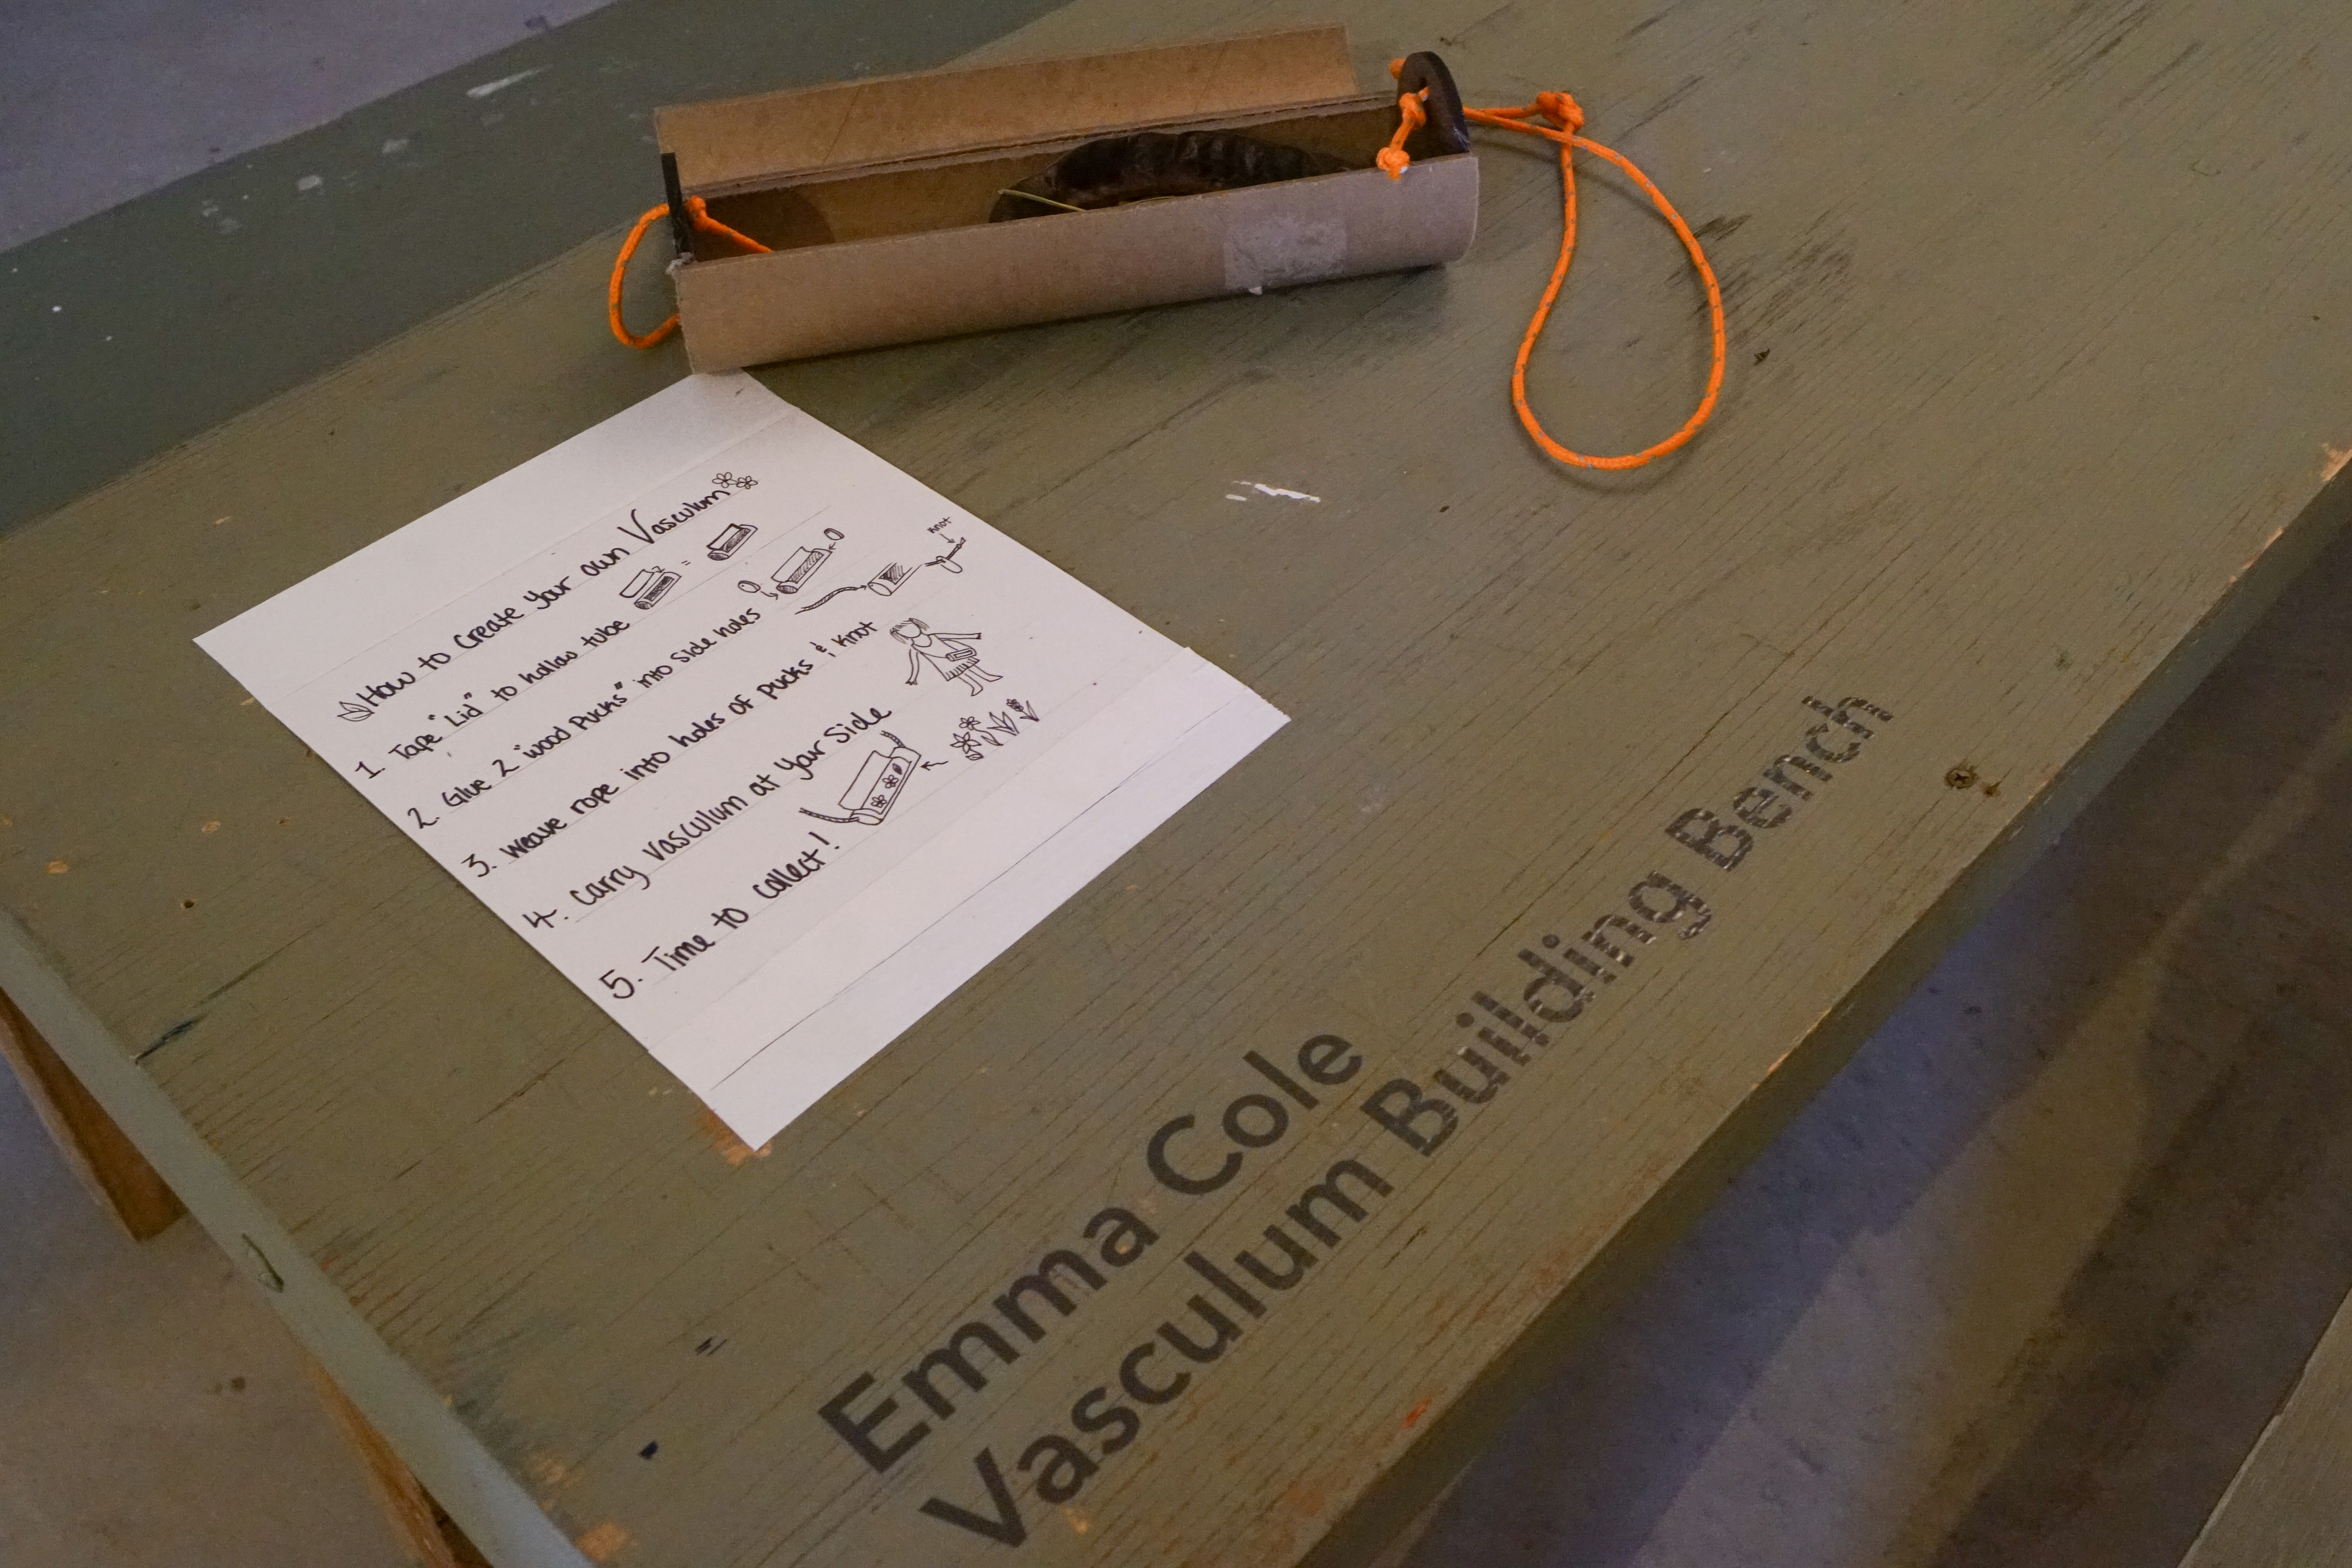 How to Create your own Vasculum
1. Tape "Lid" to hollow tube
=
2. Glue 2 "wood Pucks" into side holes
knot
3. Weave rope into holes of pucks & knot
4. Carry vasculum at your side
5. Time to collect!
Emma Cole
Vasculum Building Bench